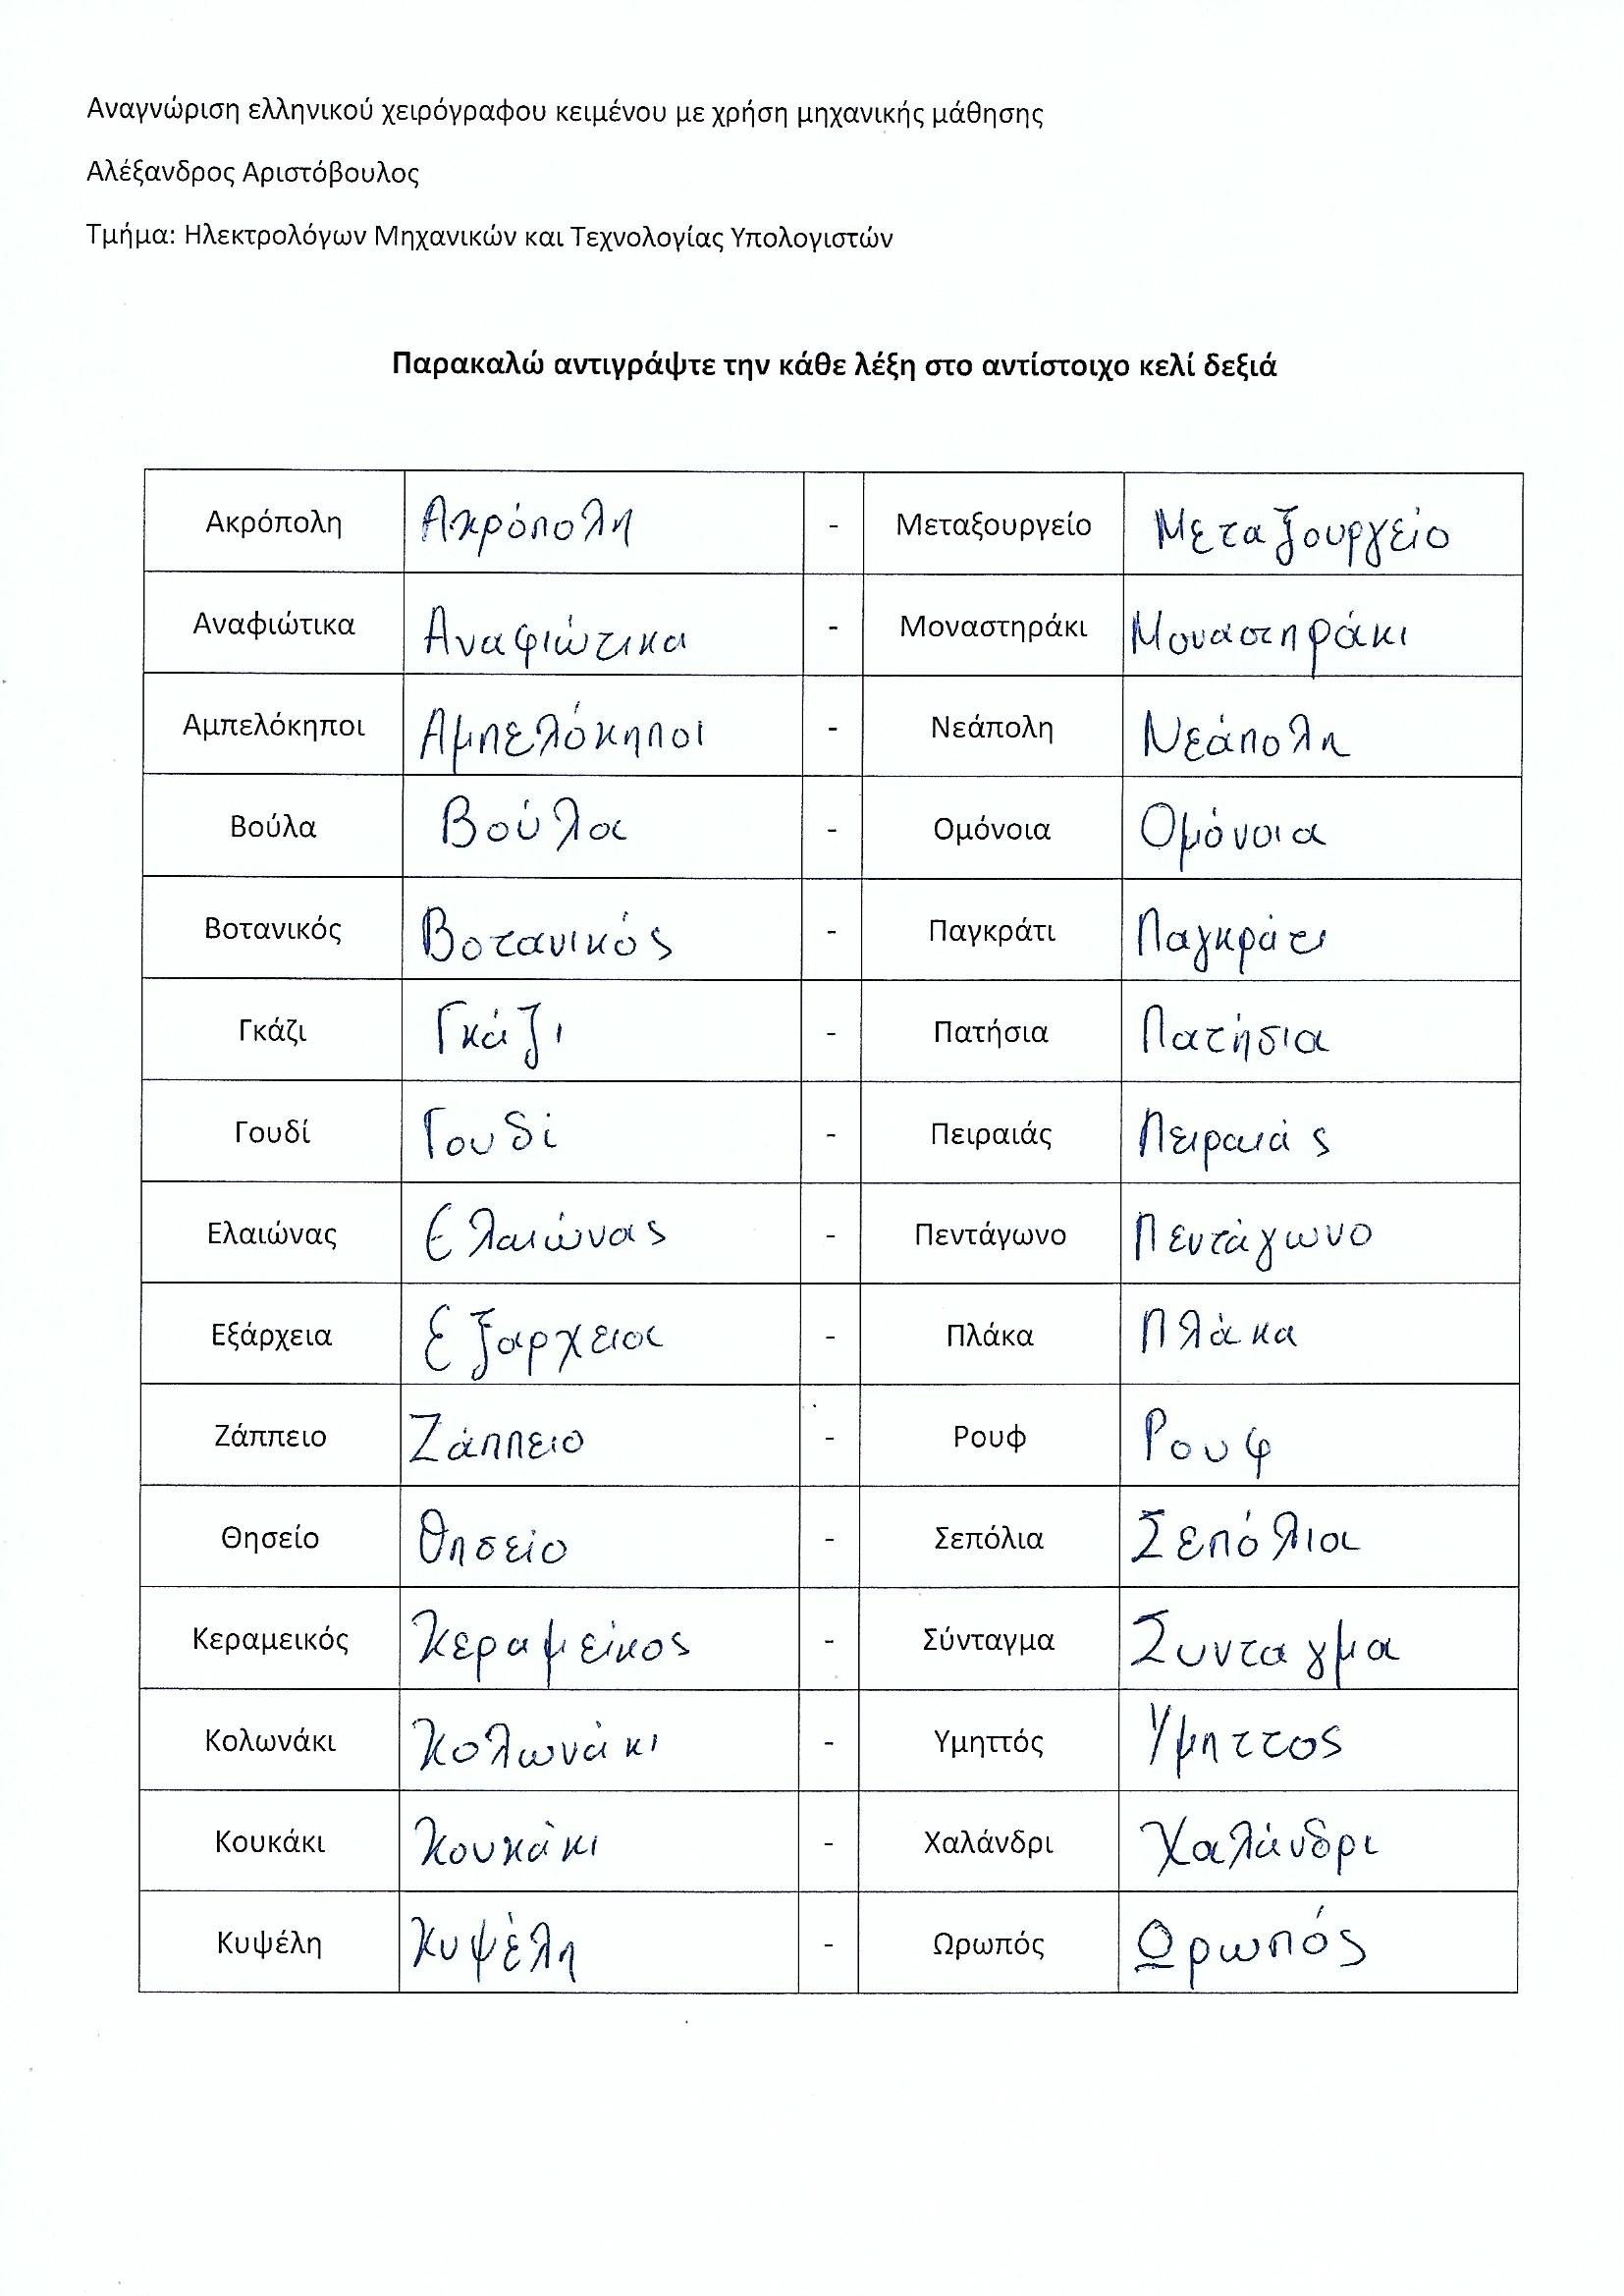 Αναγνώριση ελληνικού χειρόγραφου κειμένου με χρήση μηχανικής μάθησης
Αλέξανδρος Αριστόβουλος
Τμήμα: Ηλεκτρολόγων Μηχανικών και Τεχνολογίας Υπολογιστών
Παρακαλώ αντιγράψτε την κάθε λέξη στο αντίστοιχο κελί δεξιά
Ακρόπολη Ακρόπολη - Μεταξουργείο Μεταξουργείο
Αναφιώτικα Αναφιώτικα - Μοναστηράκι Μοναστηράκι
Αμπελόκηποι Αμπελόκηποι - Νεάπολη Νεάπολη
Βούλα Βούλα - Ομόνοια Ομόνοια
Βοτανικός Βοτανικός - Παγκράτι Παγκράτι
Γκάζι Γκάζι - Πατήσια Πατήσια
Γουδί Γουδί - Πειραιάς Πειραιάς
Ελαιώνας Ελαιώνας - Πεντάγωνο Πεντάγωνο
Εξάρχεια Εξαρχεια - Πλάκα Πλάκα
Ζάππειο Ζάππειο - Ρουφ Ρουφ
Θησείο Θησείο - Σεπόλια Σεπόλια
Κεραμεικός Κεραμείκος - Σύνταγμα Συνταγμα
Κολωνάκι Κολωνάκι - Υμηττός Υμηττος
Κουκάκι Κουκάκι - Χαλάνδρι Χαλάνδρι
Κυψέλη Κυψέλη - Ωρωπός Ωρωπός